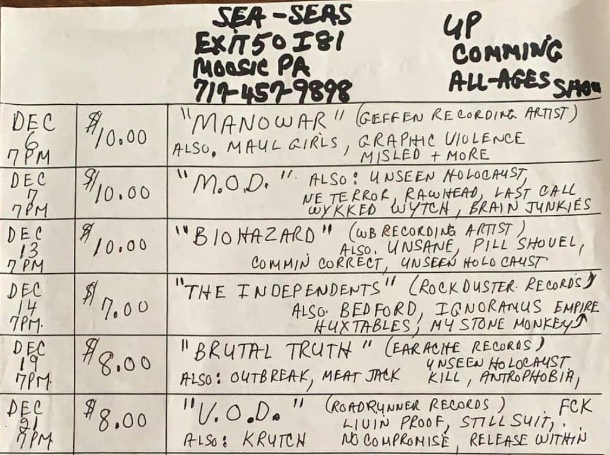 SEA-SEAS
EXIT 50 I81
MOOSIC PA
717-457-9898
UP
COMMING
ALL-AGES SHOW
DEC
6
7PM
$10.00
"MANOWAR" (GEFFEN RECORDING ARTIST)
ALSO. MAUL GIRLS, GRAPHIC VIOLENCE
MISLED + MORE
DEC
7
7PM
$10.00
"M.O.D." ALSO: UNSEEN HOLOCAUST,
NE TERROR, RAWHEAD, LAST CALL
WYKKED WYTCH, BRAIN JUNKIES
DEC
13
7PM
$10.00
"BIOHAZARD" (WB RECORDING ARTIST)
ALSO. UNSANE, PILL SHOVEL,
COMMIN CORRECT, UNSEEN HOLOCAUST
DEC
14
7PM.
$7.00
"THE INDEPENDENTS" (ROCKDUSTER RECORDS)
ALSO BEDFORD, IGNORAMUS EMPIRE
HUXTABLES, MY STONE MONKEY
DEC
19
7PM.
$8.00
"BRUTAL TRUTH" (EARACHE RECORDS)
UNSEEN HOLOCAUST
ALSO: OUTBREAK, MEAT JACK KILL, ANTROPHOBIA,
DEC
21
7PM
$8.00
"V.O.D." (ROADRUNNER RECORDS) . FCK
LIVIN PROOF, STILL SUIT,
ALSO: KRUTCH NO COMPROMISE, RELEASE WITHIN